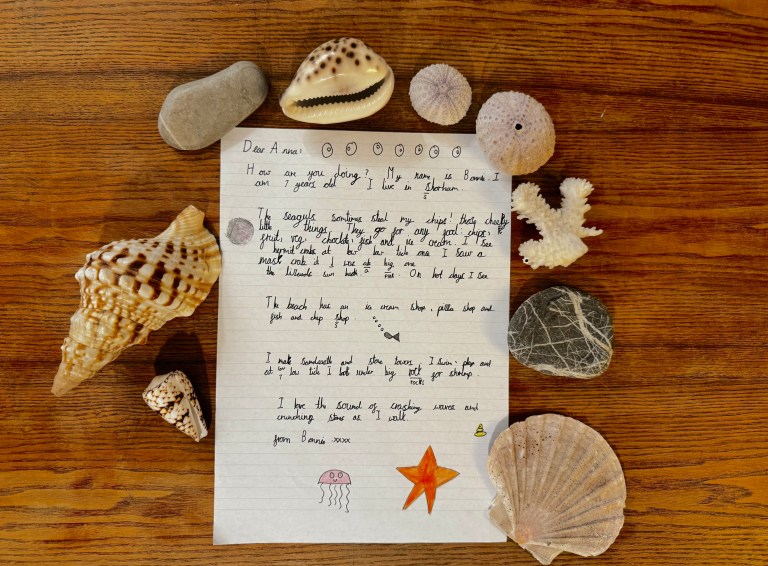 Dear Anna:
How are you doing? My name is Bonnie. I
am 7 years old I live in Shorham.
S
The seaguls somtimes steal my chips! those cheeky
little things. They go for any food chips,
fruit, veg, choclate, fish and ice cream. I see
hermit crabs at low tide one I saw a
crab it was a big one
a
the sun On hot days I see
The beach has an ice cream shop, pizza shop and
fish and chip shop
S
I make and stone towers, I swim, play and
at low tide I look under big for shrimp.
rocks
I love the sound of crashing waves and
crunching stones as I walk.
from Bonnie xxxx